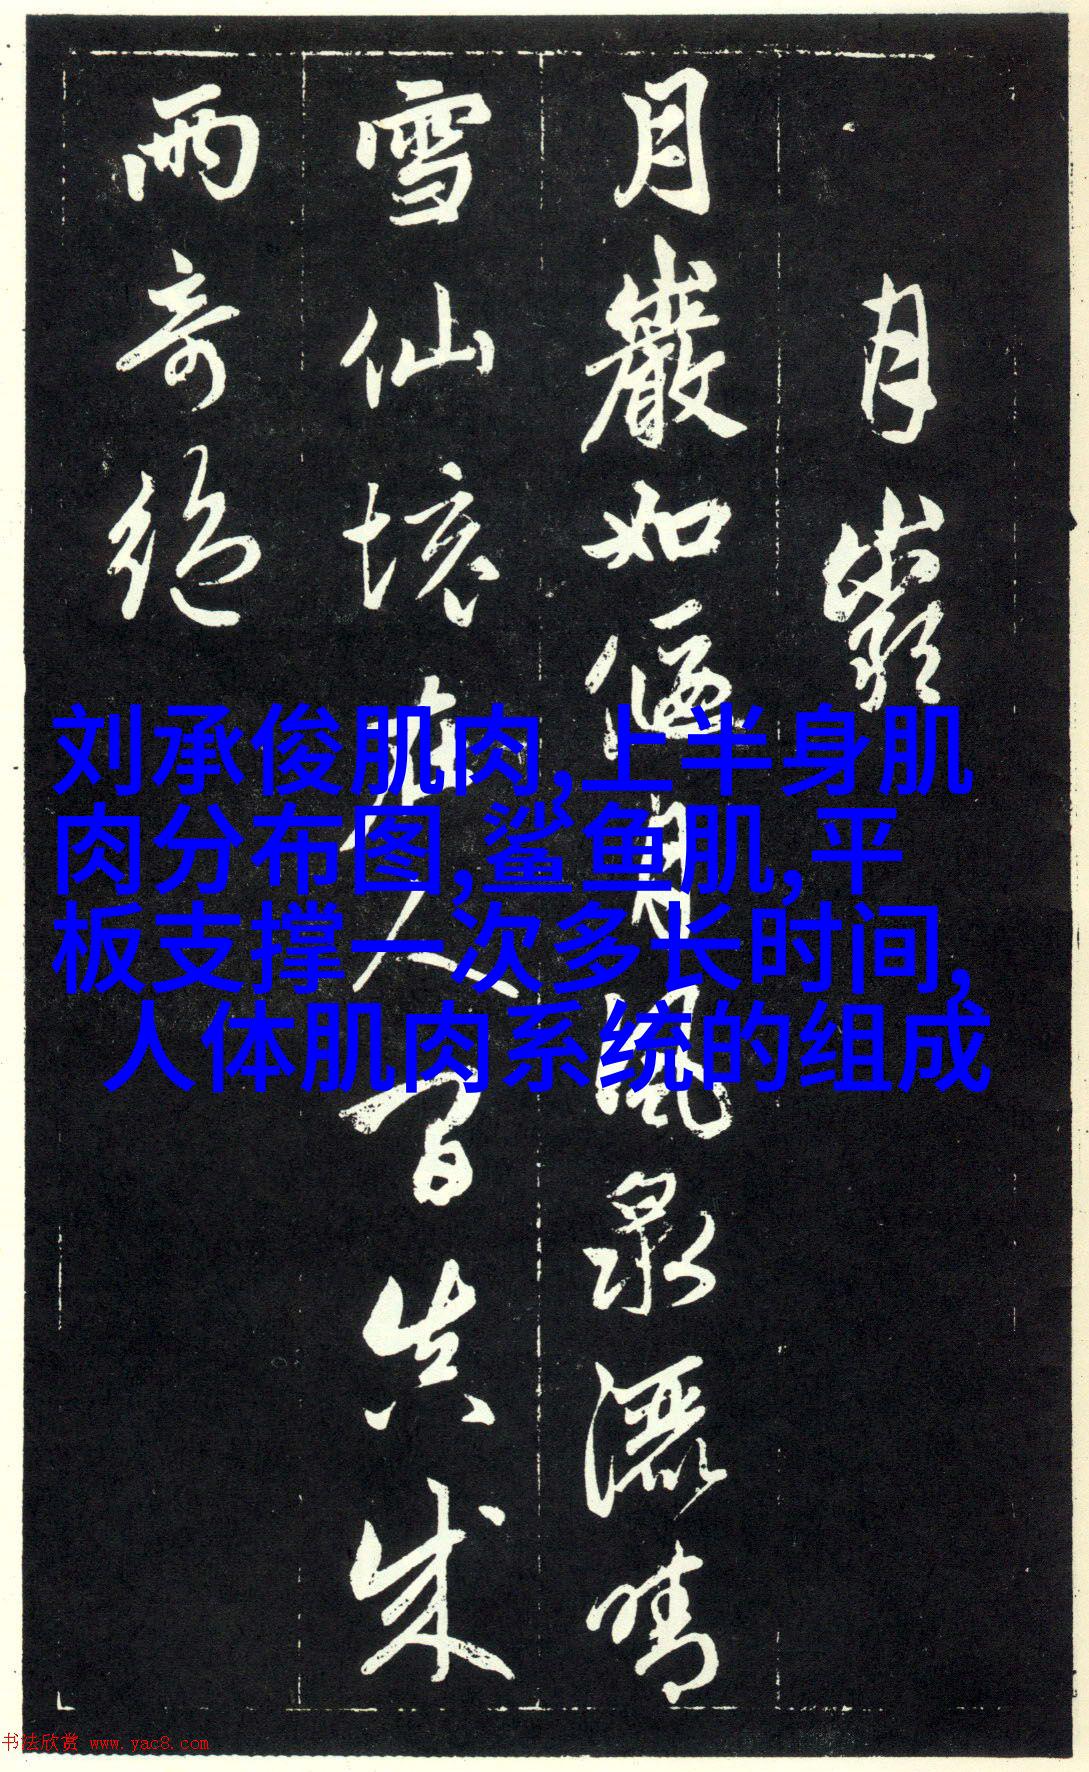 月巖
月巖如偃月風泉灑晴
雪仙境在人間真成
兩奇絕
刘承俊肌肉,上半身肌
肉分布图,鲨鱼肌,平
板支撑一次多长时间,
人体肌肉系统的组成
书法欣赏 www.yac8.com